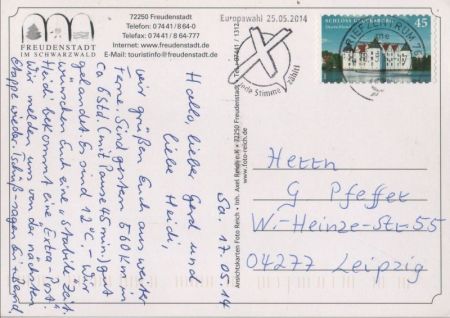 72250 Freudenstadt
Telefon: 07441/8 64-0
Telefax: 07441/8 64-777
Internet: www.freudenstadt.de
E-Mail: touristinfo@freudenstadt.de
FREUDENSTADT
IM SCHWARZWALD
Europawahl 25.05.2014
Jede Stimme zählt!
SCHLOSS
45
BRIEFZENTRUM
Ansichtskarten Foto Reich • Inh. Axel • 72250 Freudenstadt
www.foto-reich.de
Sa. 17.05.14
Hallo, liebe Gerd und
liebe Heidi,
wir grüßen Euch aus weiter
Ferne. Sind gestern 560 km in
Ca 6 Std. (mit Pause 45 min) gut
gelandet. Es sind 12°C. - Wir
wünschen Euch eine "stabile" Zeit.
Heidi bekommt eine "Extra-Post".
Wir melden uns von der nächsten
Etappe wieder. Tschüß sagen
Herrn
G Pfeffer
W.-Heinze-Str. 55
04277 Leipzig